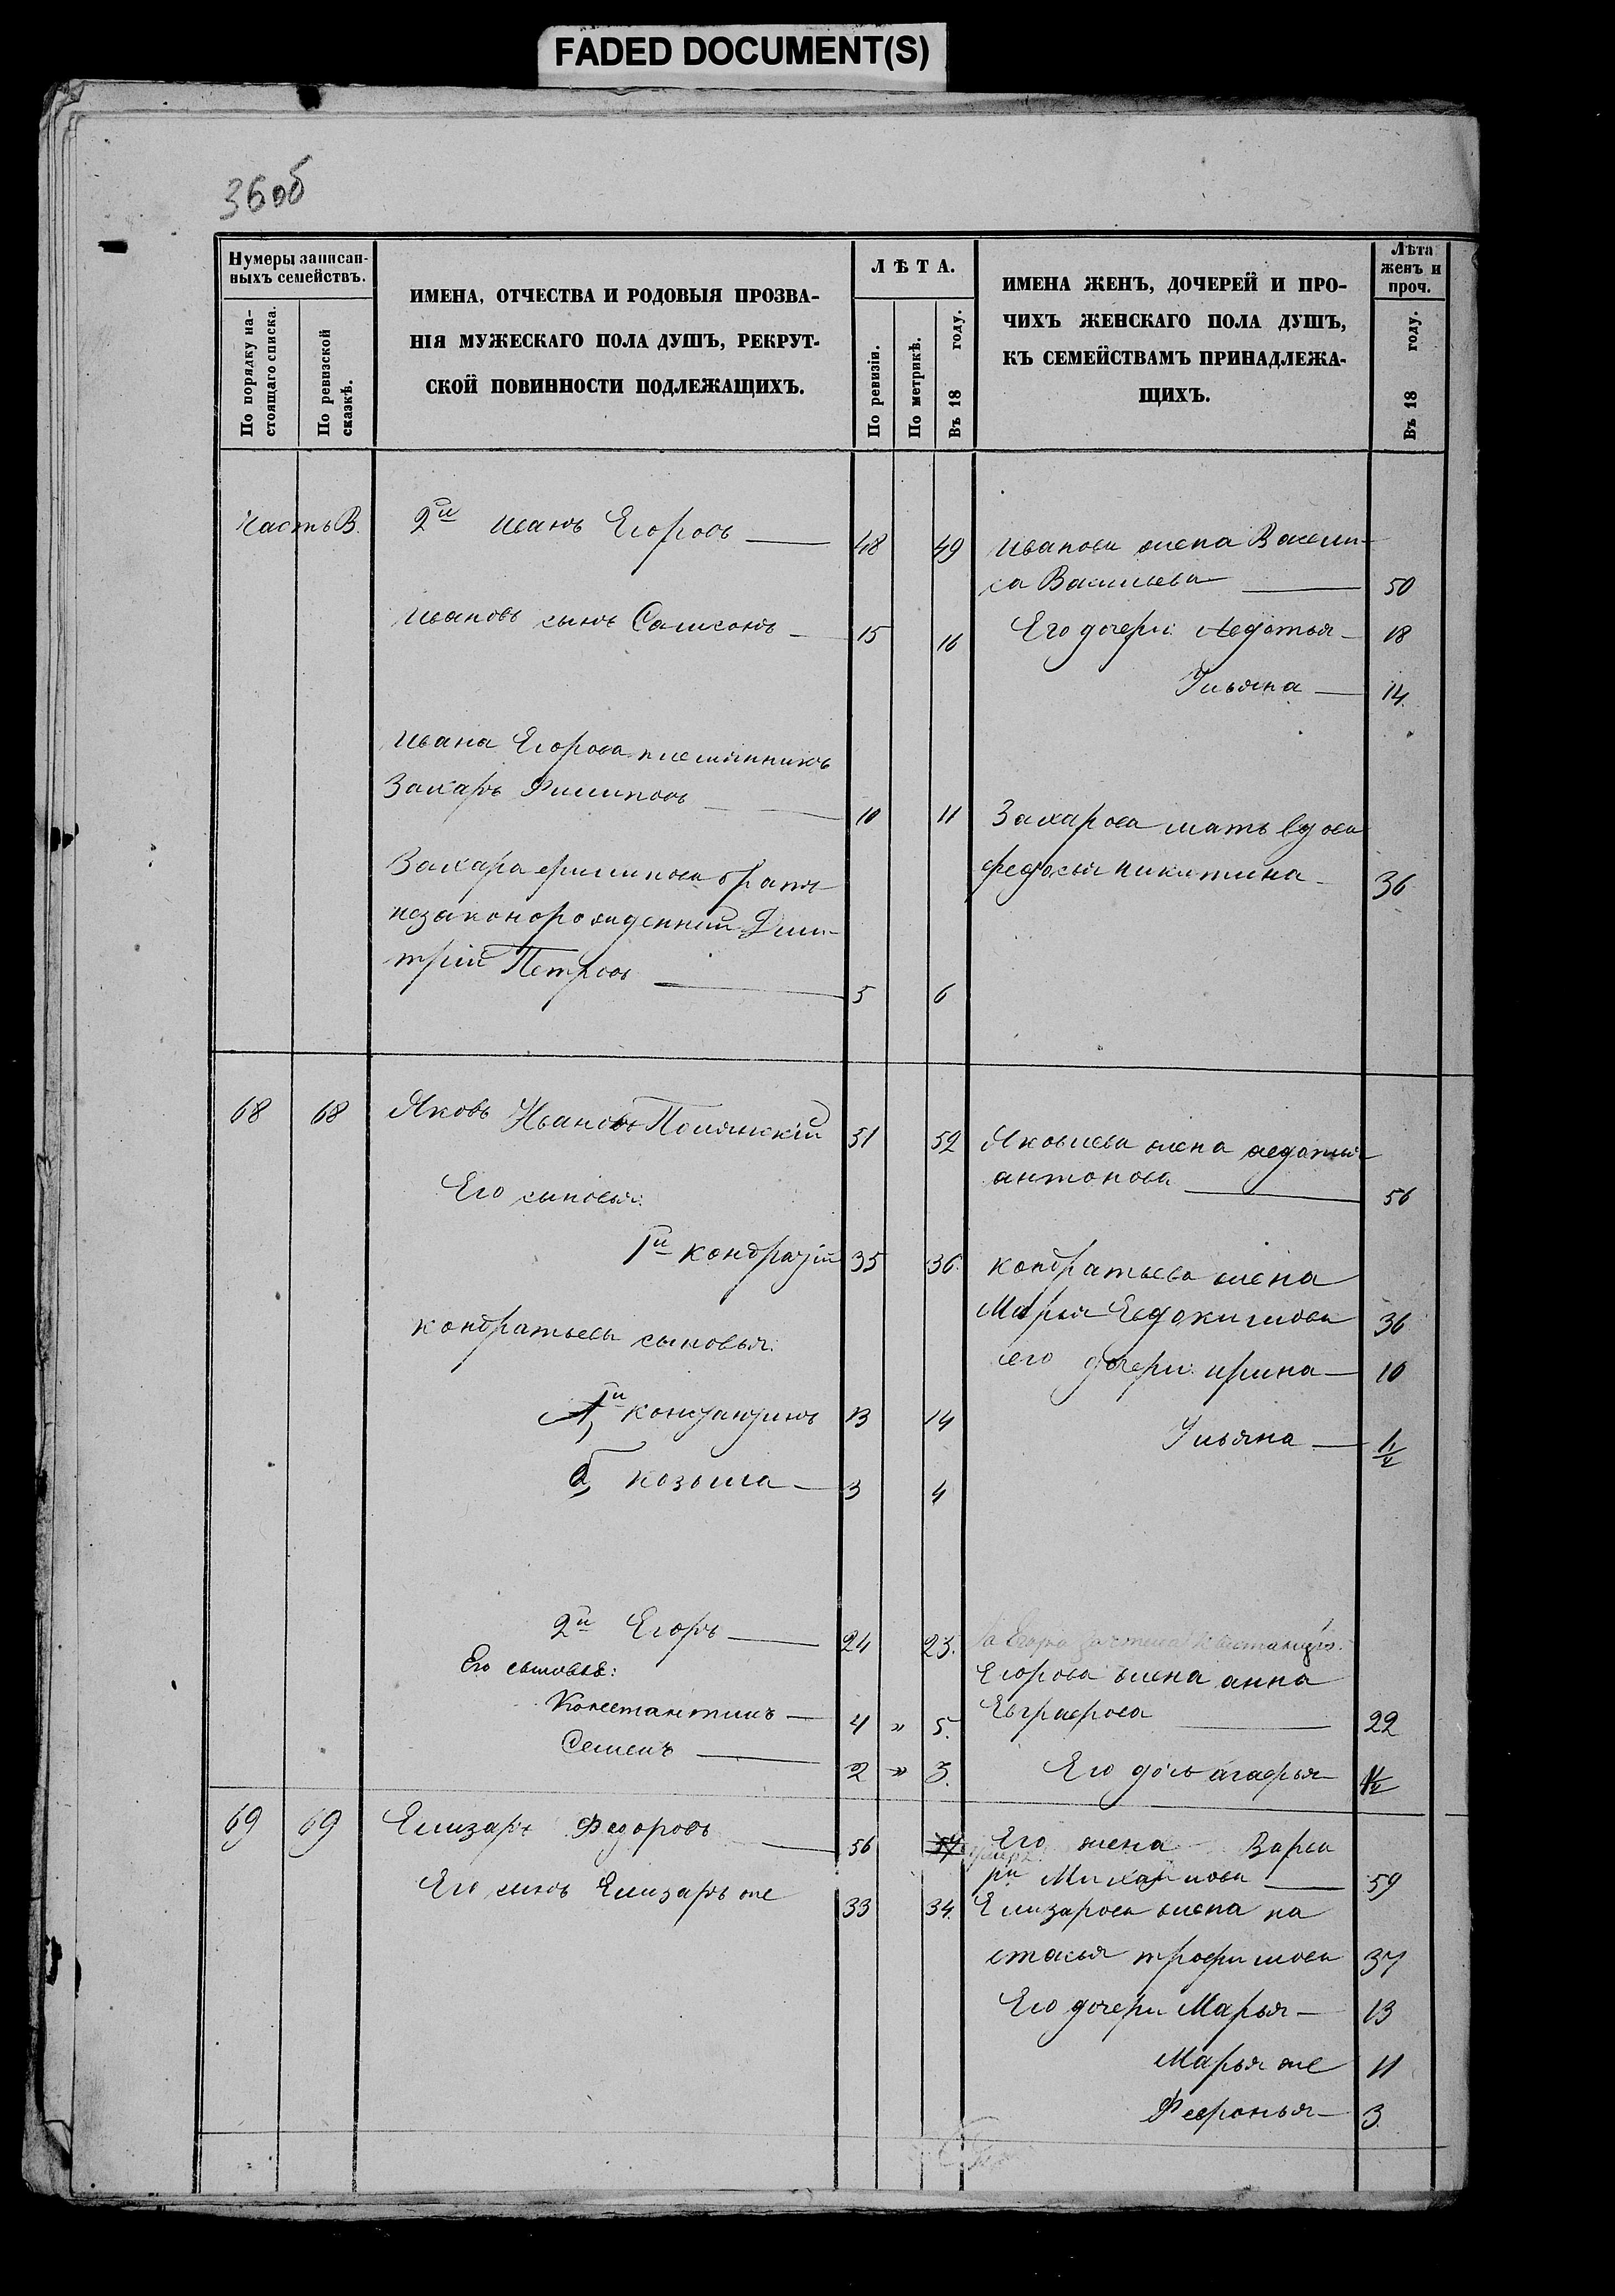 FADED DOCUMENT(S)
36об
Нумеры записан-
ныхъ семействъ.
По порядку на-
стоящаго списка.
По ревизской
сказкѣ.
ИМЕНА, ОТЧЕСТВА И РОДОВЫЯ ПРОЗВА-
НІЯ МУЖЕСКАГО ПОЛА ДУШЪ, РЕКРУТ-
СКОЙ ПОВИННОСТИ ПОДЛЕЖАЩИХЪ.
ЛѢТА.
По ревизіи.
По метрикѣ.
Въ 18 году.
ИМЕНА ЖЕНЪ, ДОЧЕРЕЙ И ПРО-
ЧИХЪ ЖЕНСКАГО ПОЛА ДУШЪ,
КЪ СЕМЕЙСТВАМЪ ПРИНАДЛЕЖА-
ЩИХЪ.
Лѣта
женъ и
проч.
Въ 18 году.
Часть В. 2й Иванъ Егоровъ 48 49 Иванова жена Васили-
са Васильева 50
Ивановъ сынъ Самсонъ 15 16 Его дочери: Авдотья 18
Ульяна 14.
Ивана Егорова племянникъ
Захаръ Филиповъ 10 11 Захарова мать вдова
Федосья Никитина 36
Захара Филипова братъ
незаконорожденный Дми-
трій Петровъ 5 6
68 68 Яковъ Ивановъ Полянскій 51 52 Яковлева жена авдотья
антонова 56
Его сыновья:
1й Кондратій 35 36. Кондратьева жена
Марья Евдокимова 36
Кондратьевы сыновья: его дочери: ирина 10
1й Константинъ 13 14
Ульяна 1/2
б, Козьма 3 4
2й Егоръ 24 23. За Егора зачтена квитанція.
Его сыновья: Егорова жена анна
Константинъ 4 " 5. Евграфова 22
Семенъ 2 " 3. Его дочь агафья 1/2
69 69 Елизаръ Федоровъ 56 57 Его жена Варва
ра Михайлова 59
Его сынъ Елизаръ же 33 34. Елизарова жена на
стасья трофимова 37
Его дочери Марья 13
Марья же 11
Февронья 3.